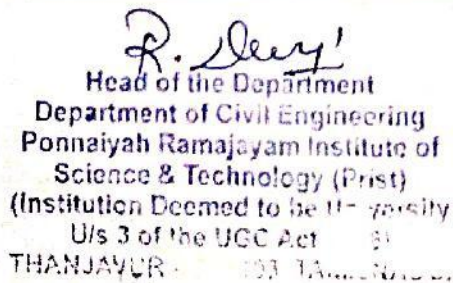 R. Devi
Head of the Department
Department of Civil Engineering
Ponnaiyah Ramajayam Institute of
Science & Technology (Prist)
(Institution Deemed to be
U/s 3 of the UGC Act
THANJAVUR -